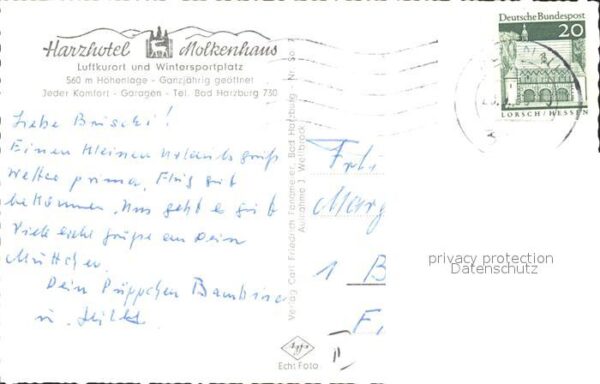 Harzhotel Molkenhaus
Luftkurort und Wintersportplatz
560 m Höhenlage - Ganzjährig geöffnet
Jeder Komfort - Garagen - Tel. Bad Harzburg 730
Liebe
Einen kleinen Urlaubsgruß
Wetter prima, Flug gut
bekommen, uns geht es gut
Viele liebe Grüße an Dein
Müttchen.
Dein Püppchen
u.
Verlag Carl Friedrich Fangmeier, Bad Harzburg - Nr.
Aufnahme J. Wellbrock
Agfa
Echt Foto
Deutsche Bundespost
20
LORSCH/HESSEN
1 B
privacy protection
Datenschutz